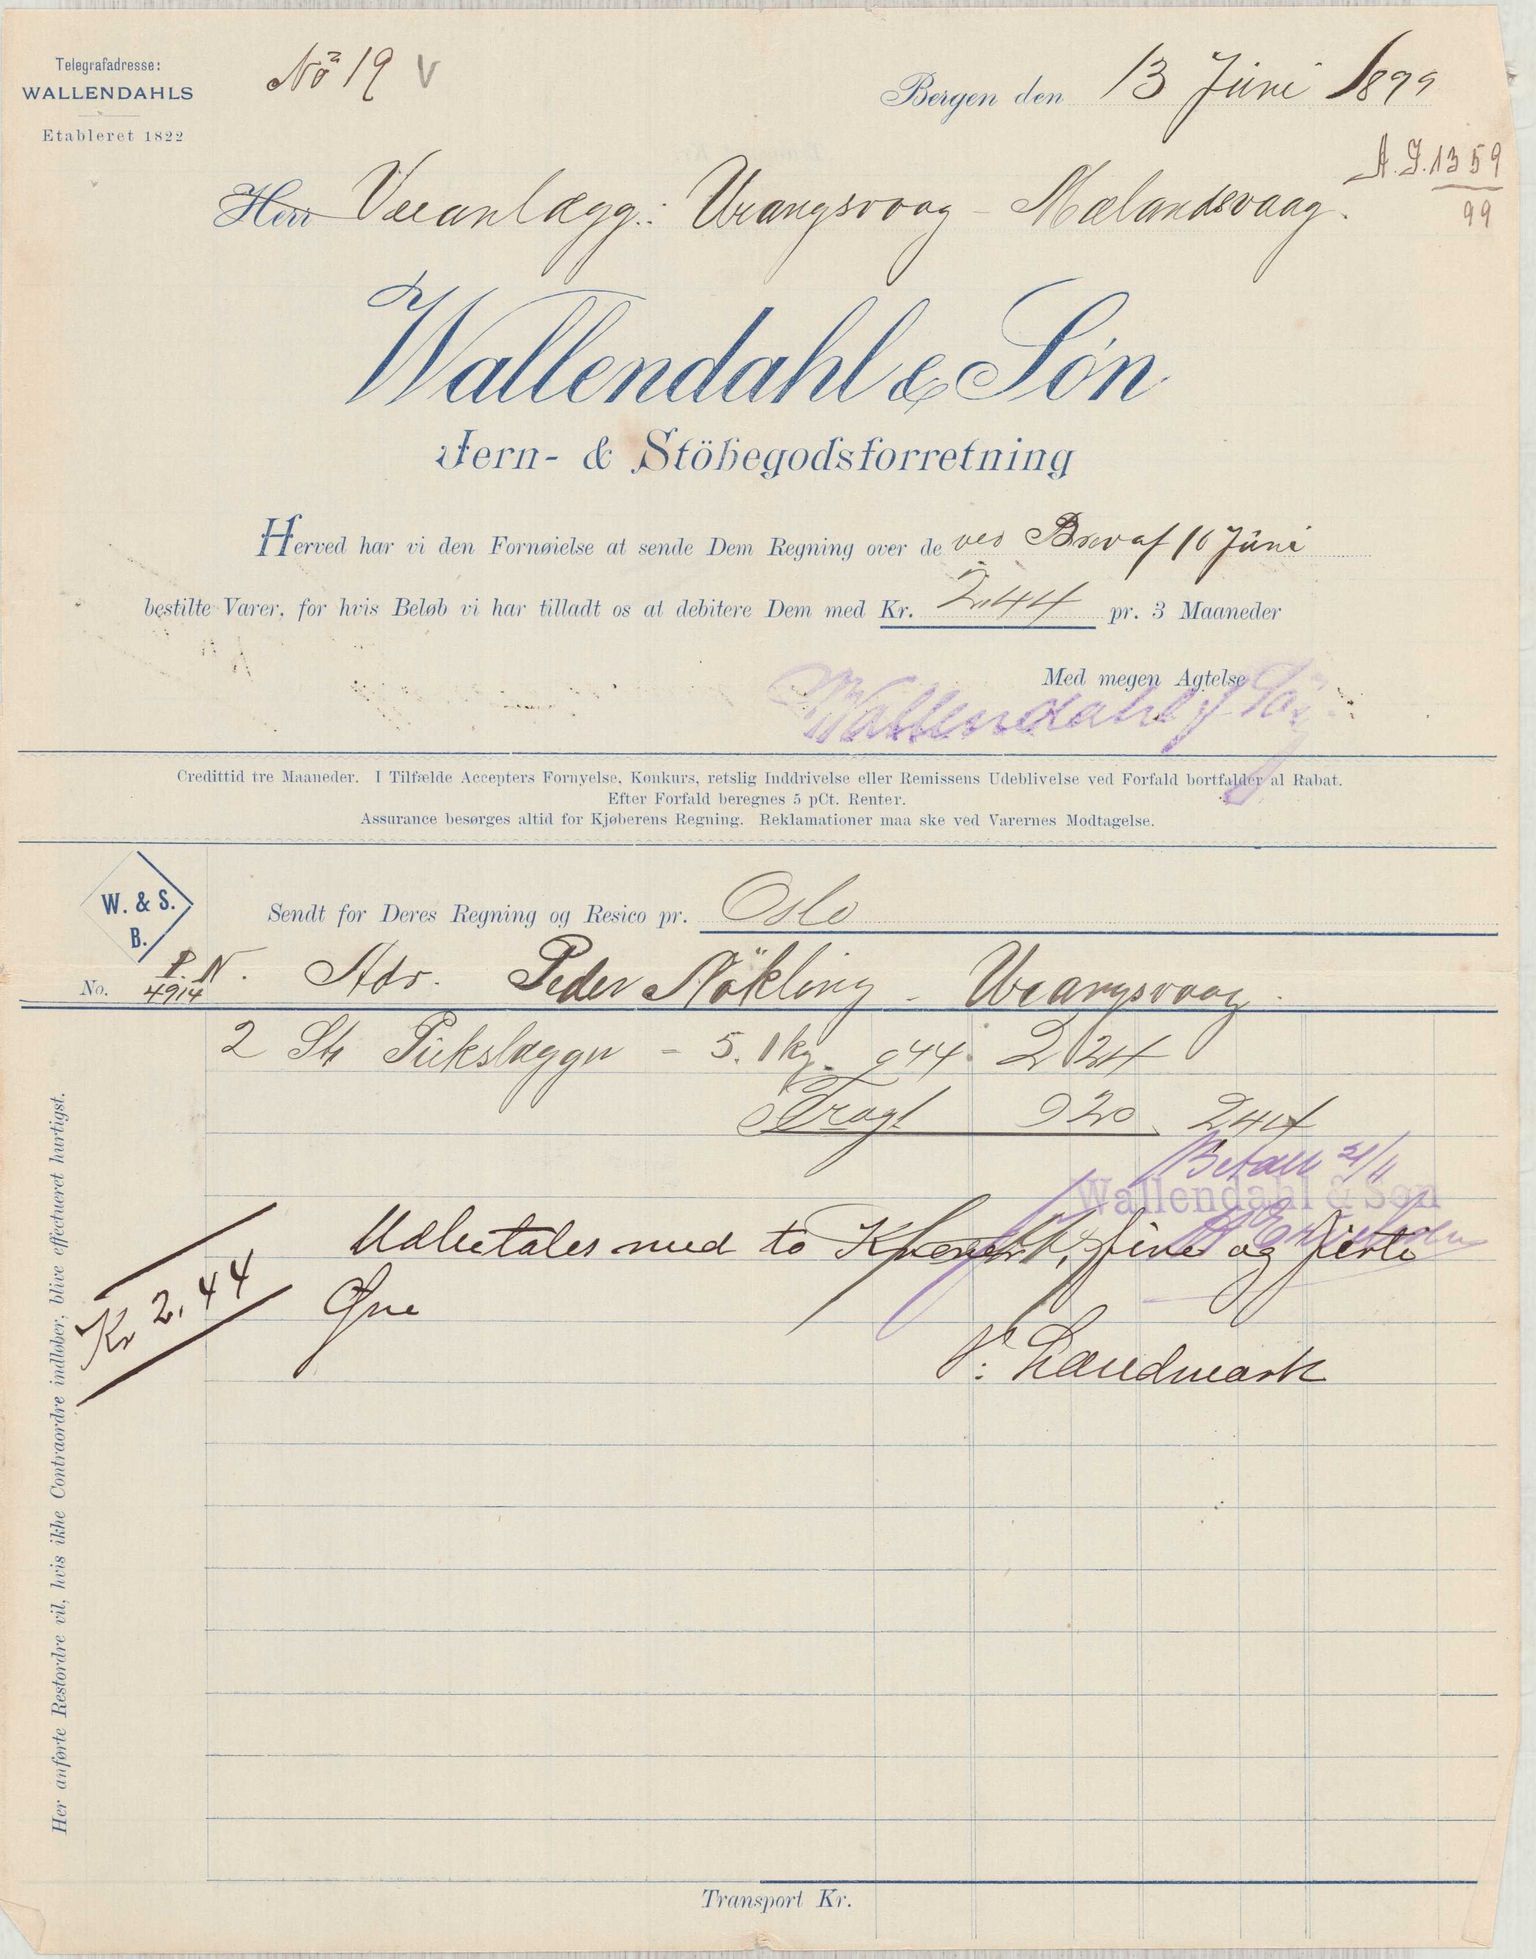 Telegrafadresse:
WALLENDAHLS
Etableret 1822
No 19 V
Bergen den 13 Juni 1899
A. J. 1359
99
Herr Veianlægg: Vrangsvaag - Mælandsvaag.
Wallendahl & Søn
Jern- & Stöbegodsforretning
Herved har vi den Fornøielse at sende Dem Regning over de ved Brev af 10 Juni
bestilte Varer, for hvis Beløb vi har tilladt os at debitere Dem med Kr. 2,44 pr. 3 Maaneder
Med megen Agtelse
Wallendahl & Søn
Credittid tre Maaneder. I Tilfælde Accepters Fornyelse, Konkurs, retslig Inddrivelse eller Remissens Udeblivelse ved Forfald bortfalder al Rabat.
Efter Forfald beregnes 5 pCt. Renter.
Assurance besørges altid for Kjøberens Regning. Reklamationer maa ske ved Varernes Modtagelse.
W. & S.
B.
Sendt for Deres Regning og Resico pr. Oslo
P. N. Adr. Peder Nökling - Vrangsvaag.
No. 4914
2 St Pukslægger - 5.1 kg. 044. 2 24
Fragt 020 244
Betalt 21/11
Wallendahl & Søn
Udbetales med to Kroner, firti og firti
Øre
Kr 2,44
Landmark
Her anførte Restordre vil, hvis ikke Contraordre indløber, blive effectueret hurtigst.
Transport Kr.